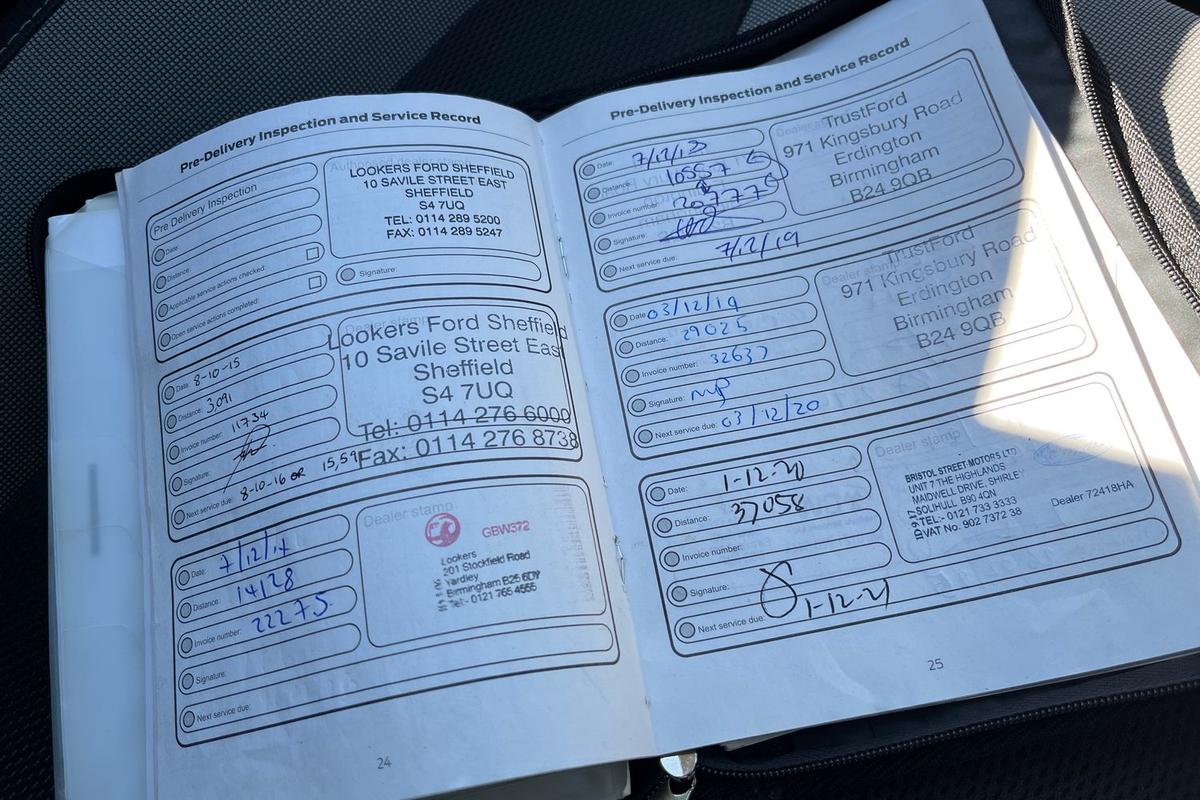 Pre-Delivery Inspection and Service Record
Pre Delivery Inspection
Date:
Distance:
Applicable service actions checked:
Open service actions completed:
LOOKERS FORD SHEFFIELD
10 SAVILE STREET EAST
SHEFFIELD
S4 7UQ
TEL: 0114 289 5200
FAX: 0114 289 5247
Signature:
Date: 8-10-15
Distance: 3,091
Invoice number: 11734
Signature:
Next service due: 8-10-16 OR 15,591
Lookers Ford Sheffield
10 Savile Street East
Sheffield
S4 7UQ
Tel: 0114 276 6000
Fax: 0114 276 8738
Date: 7/12/17
Distance: 14128
Invoice number: 22275
Signature:
Next service due:
Dealer stamp
GBW372
Lookers
201 Stockfield Road
Yardley
Birmingham B25 6DY
Tel:- 0121 765 4555
24
Pre-Delivery Inspection and Service Record
Date: 7/12/18
Distance:
Invoice number:
Signature:
Next service due: 7/12/19
TrustFord
971 Kingsbury Road
Erdington
Birmingham
B24 9QB
Date: 03/12/19
Distance: 29025
Invoice number: 32637
Signature:
Next service due: 03/12/20
Dealer stamp
TrustFord
971 Kingsbury Road
Erdington
Birmingham
B24 9QB
Date: 1-12-20
Distance: 37058
Invoice number:
Signature:
Next service due: 1-12-21
Dealer stamp
BRISTOL STREET-MOTORS LTD
UNIT 7 THE HIGHLANDS
MAIDWELL DRIVE, SHIRLEY
SOLIHULL B90 4QN
TEL:- 0121 733 3333
VAT No. 902 7372 38
Dealer 72418HA
25